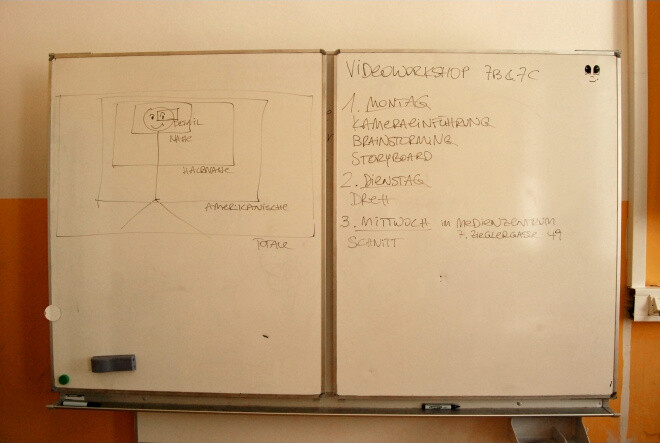 DETAIL
NAHE
HALBNAHE
AMERIKANISCHE
TOTALE
VIDEOWORKSHOP 7B & 7C
1. MONTAG
KAMERAEINFÜHRUNG
BRAINSTORMING
STORYBOARD
2. DIENSTAG
DREH
3. MITTWOCH IM MEDIENZENTRUM
7. ZIEGLERGASSE 49
SCHNITT